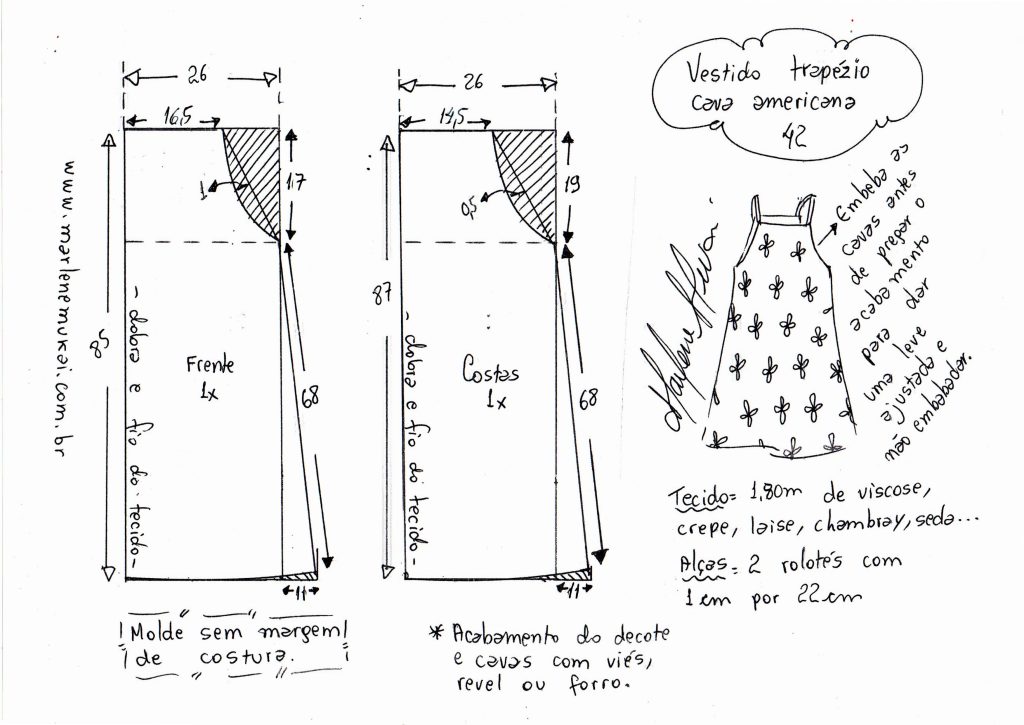 26
16,5
1
17
85
- dobra e fio do tecido -
Frente
1x
68
11
www.marlenemukai.com.br
Molde sem margem
de costura.
26
14,5
0,5
19
87
- dobra e fio do tecido -
Costas
1x
68
11
* Acabamento do decote
e cavas com viés,
revel ou forro.
Vestido trapézio
cava americana
42
Marlene Mukai
Embeba as
cavas antes
de pregar o
acabamento
para dar
uma leve
ajustada e
não embabadar.
Tecido= 1,80m de viscose,
crepe, laise, chambray, seda...
Alças= 2 rolotés com
1 cm por 22 cm